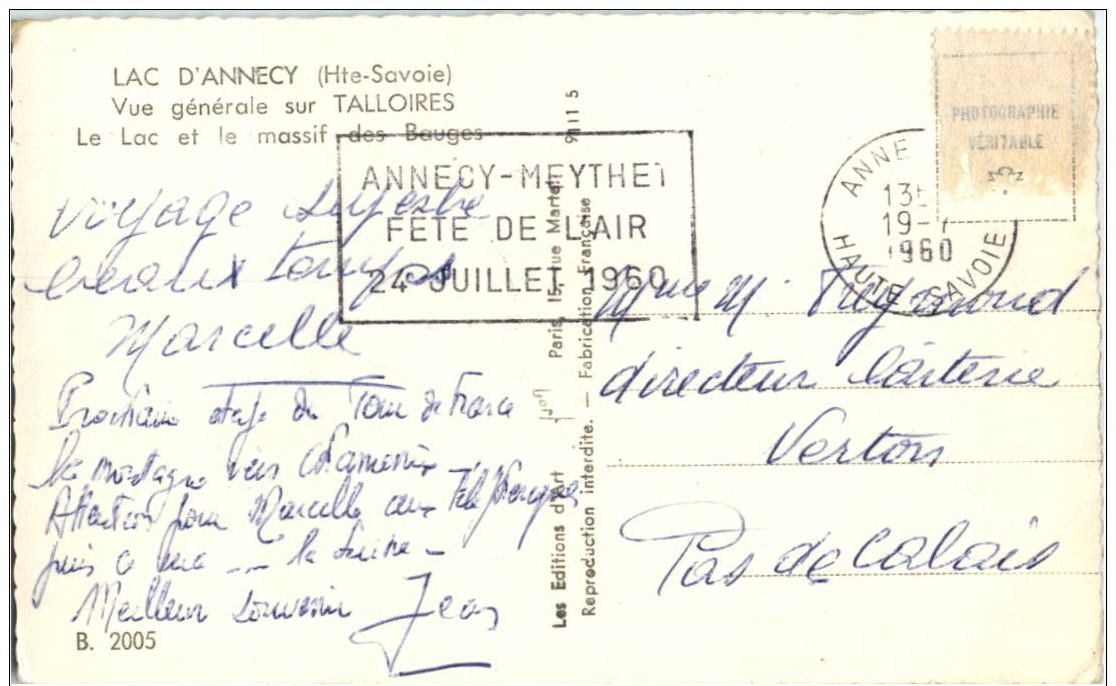 LAC D'ANNECY (Hte-Savoie)
Vue générale sur TALLOIRES
Le Lac et le massif des Bauges
ANNECY-MEYTHET
FÊTE DE L'AIR
24 JUILLET 1960
ANNE
19-7
1960
HAUTE SAVOIE
PHOTOGRAPHIE
VÉRITABLE
voyage superbe
beaux temps
Marcelle
Prochaine étape du Tour de France
la montagne vers Chamonix
Attention pour Marcelle aux Téléphériques
puis la Suisse -
Meilleur souvenir Jean
B. 2005
Les Editions d'Art Paris, 15, rue Martel 91115
Reproduction interdite. — Fabrication Française
Mme M.
directeur laiterie
Verton
Pas de Calais